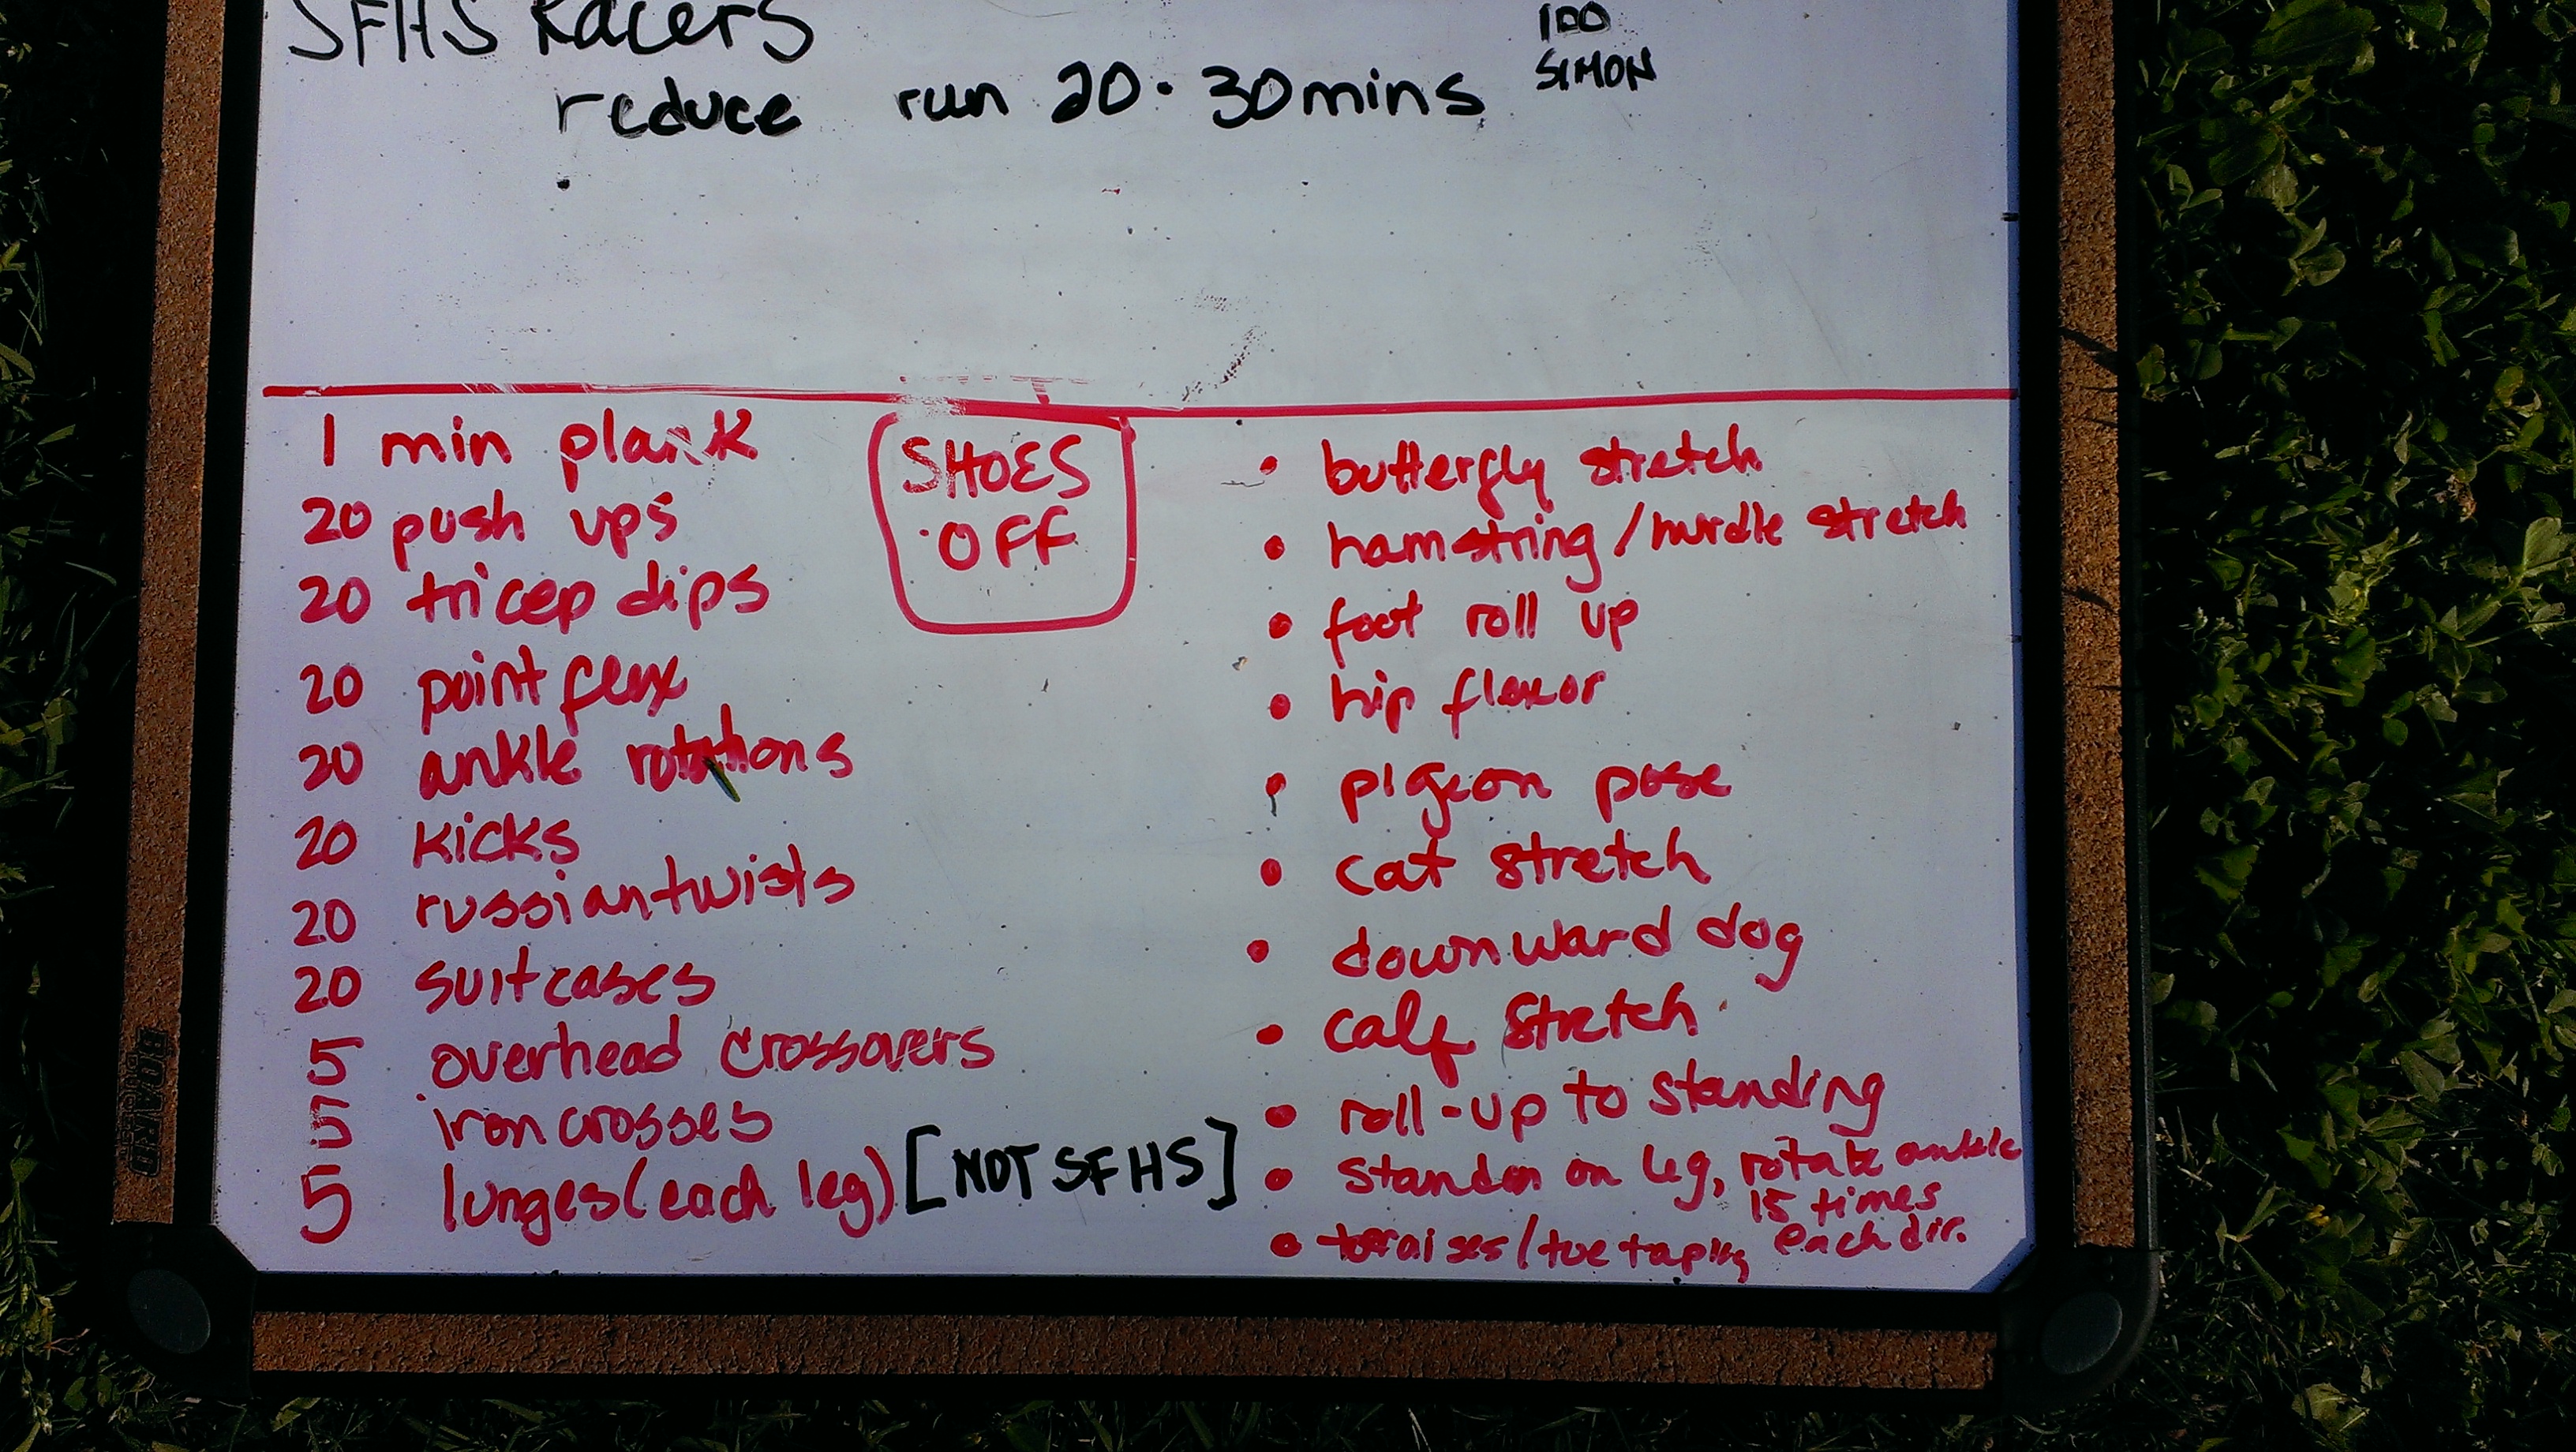 SFHS Racers
reduce run 20-30mins
IDO
SIMON
1 min plank
20 push ups
20 tricep dips
20 point flex
20 ankle rotations
20 kicks
20 russian twists
20 suitcases
5 overhead crossovers
5 iron crosses
5 lunges (each leg) [NOT SFHS]
SHOES
OFF
• butterfly stretch
• hamstring/hurdle stretch
• foot roll up
• hip flexor
• pigeon pose
• cat stretch
• downward dog
• calf stretch
• roll-up to standing
• stand on leg, rotate ankle
15 times
each dir.
• toe raises/toe taping
BOARD
DUDES